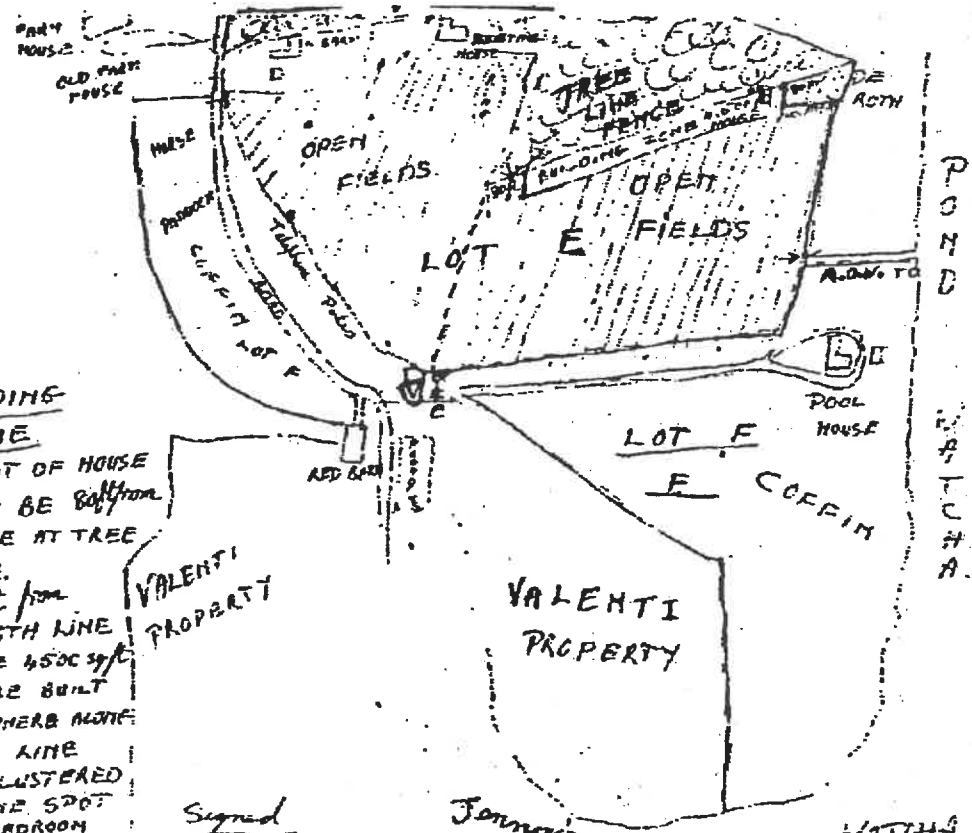 FARM
HOUSE
OLD FARM
HOUSE
BARN
EXISTING
HOUSE
TREE
LINE
FENCE
BUILDING ZONE
HOUSE
DE
ROTH
HORSE
PADDOCK
OPEN
FIELDS
OPEN
FIELDS
LOT E
Telephone Poles
COFFIN LOT F
ROAD
POND
POOL
HOUSE
RED BARN
LOT F
F
COFFIN
VALENTI
PROPERTY
VALENTI
PROPERTY
DING
NE
T OF HOUSE
BE 80ft from
E AT TREE
E.
from
TH LINE
E 4500 sq/ft
RE BUILT
WHERE ALONG
LINE
LUSTERED
NE SPOT
ADROOM
Signed